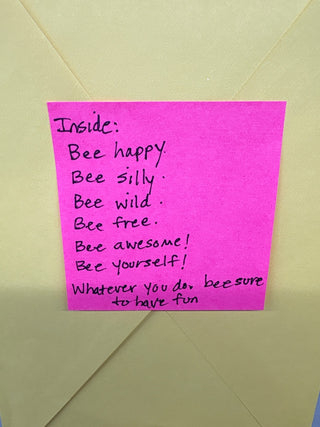 Inside:
Bee happy.
Bee silly.
Bee wild.
Bee free.
Bee awesome!
Bee yourself!
Whatever you do, bee sure
to have fun